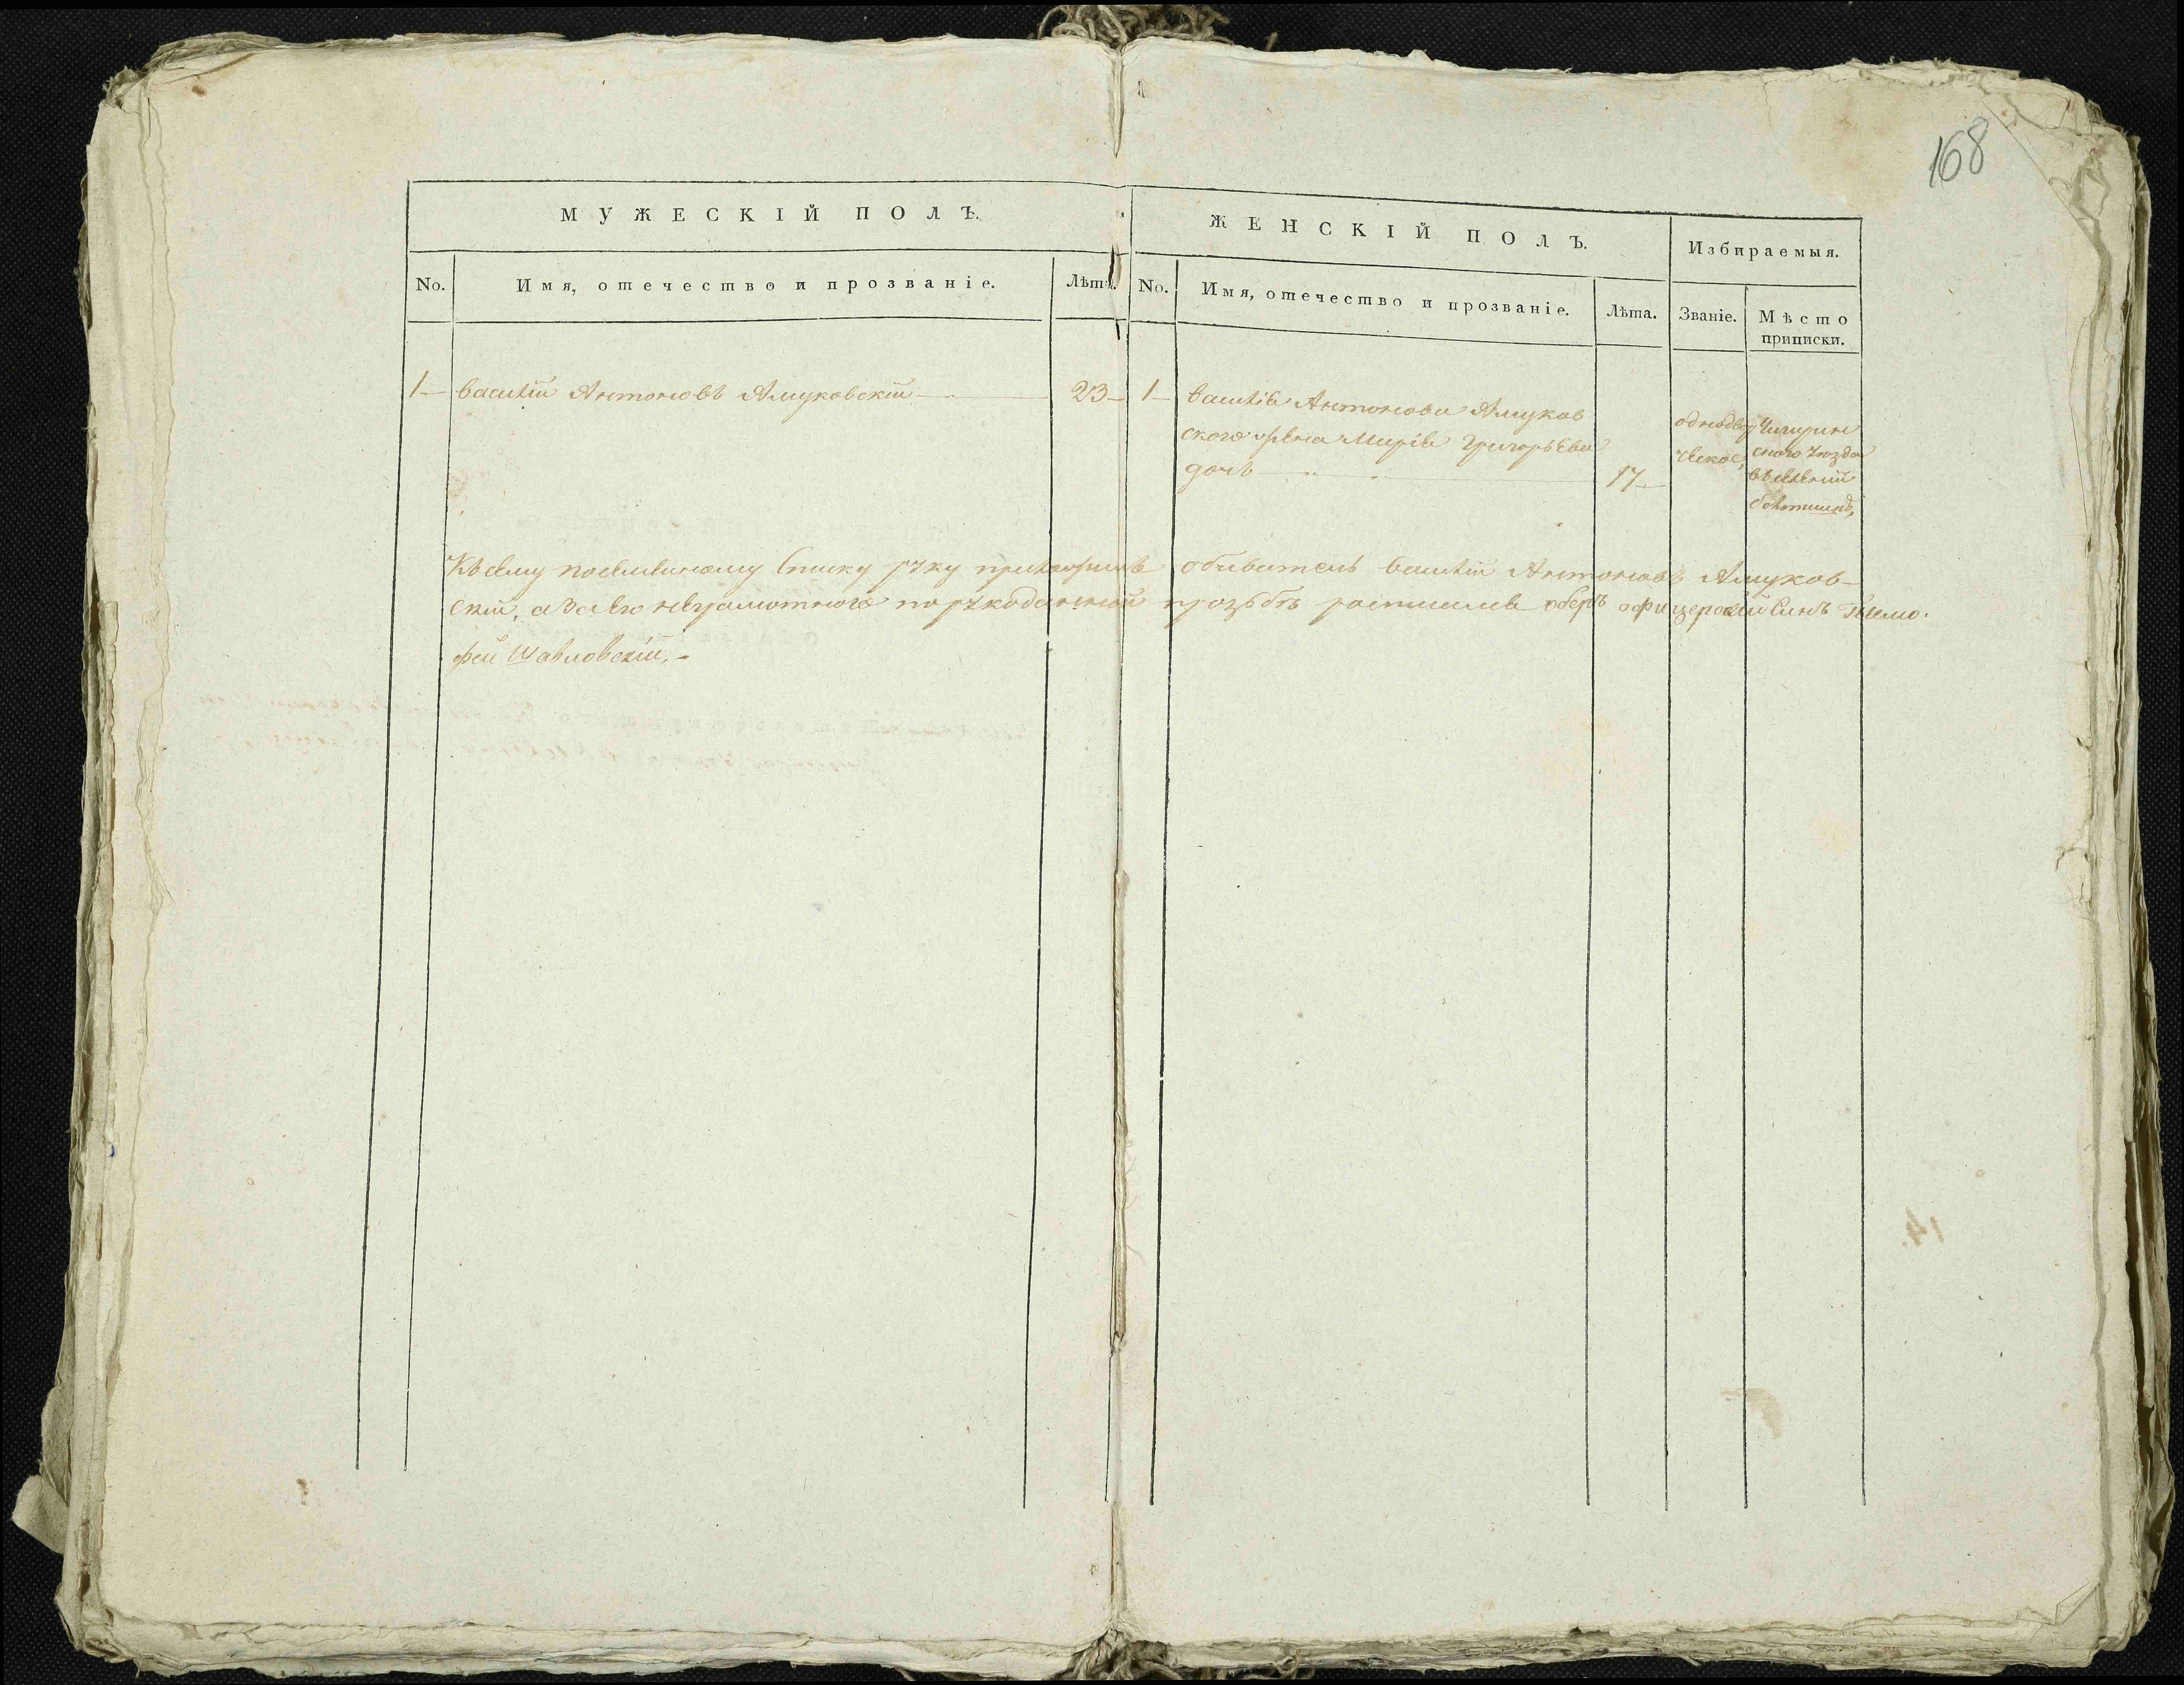 168
МУЖЕСКІЙ ПОЛЪ.
ЖЕНСКІЙ ПОЛЪ.
Избираемыя.
No. Имя, отечество и прозваніе. Лѣта.
No. Имя, отечество и прозваніе. Лѣта. Званіе. Мѣсто
приписки.
1 Василій Антоновъ Ямуковскій 23
1 Василія Антонова Ямуков
ского жена Марія Григорьева
дочь 17
однодвор
ческое,
Чигирин
ского уѣзда
въ селеніи
Къ сему посемейному списку руку приложилъ обыватель Василій Антоновъ Ямуков-
скій, а за его неграмотного по рукоданной прозьбѣ росписался оберъ офицерскій сынъ Тимо-
фей Шавловскій.
14.